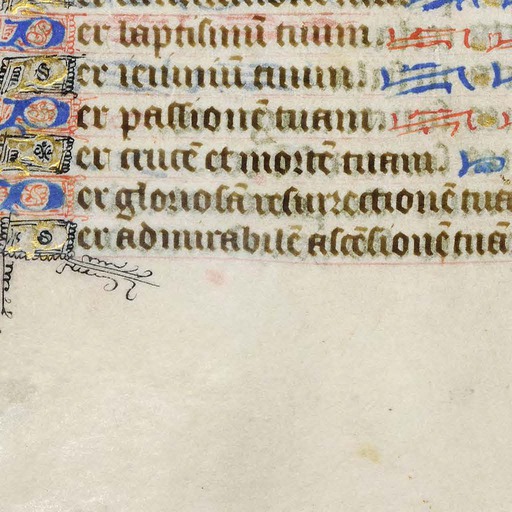 Per baptismū tuum
Per ieiuniū tuum
Per passionē tuam
Per crucē et mortē tuam
Per gloriosā resurrectionē tuā
Per admirabilē ascēsionē tuā